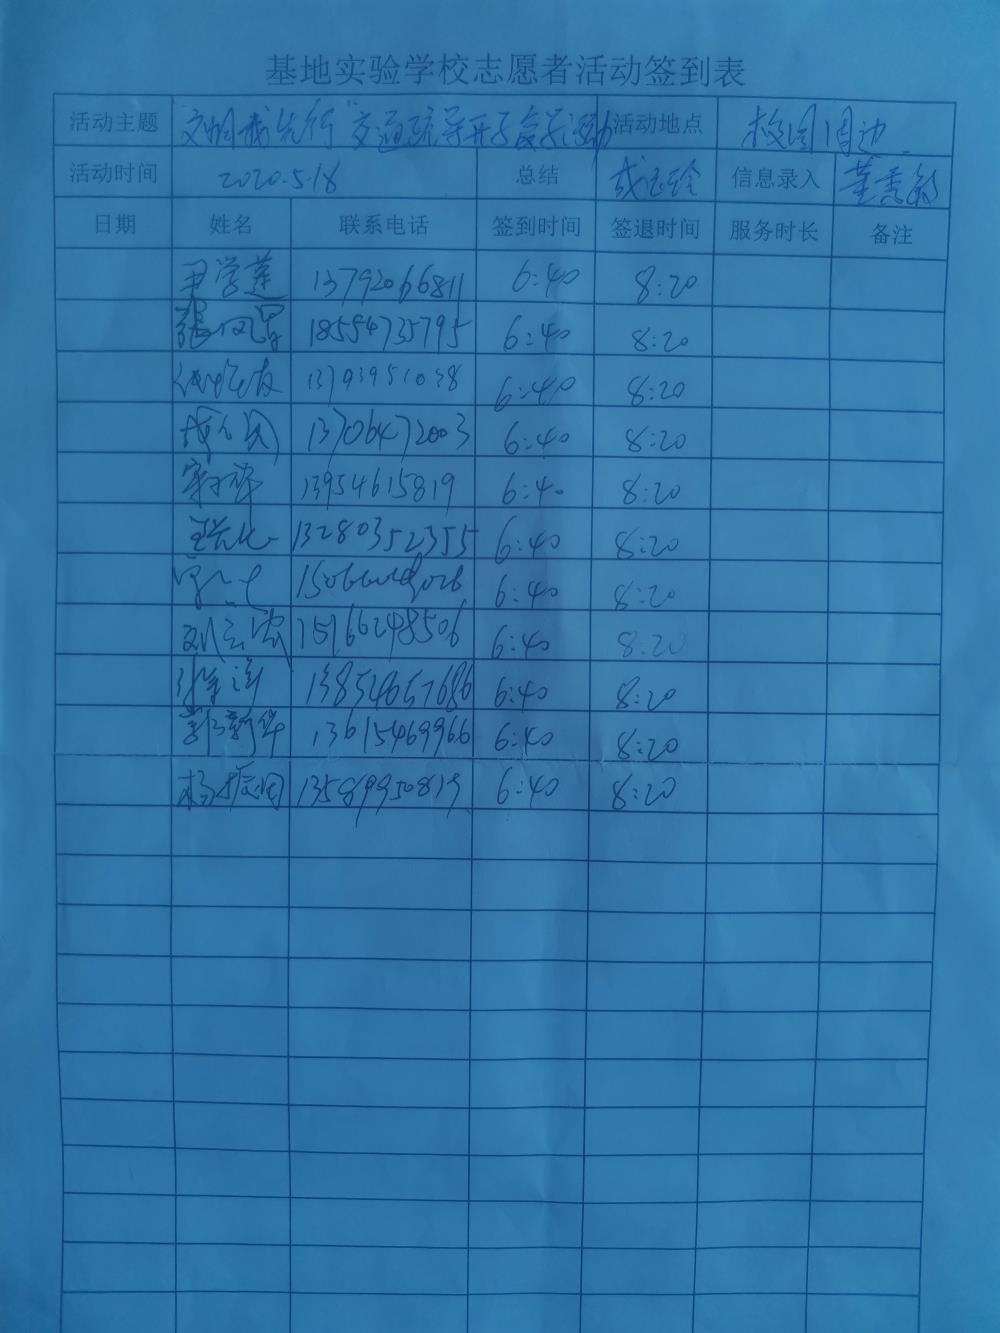 基地实验学校志愿者活动签到表
活动主题 文明我先行"交通疏导开学复学活动 活动地点 校园周边
活动时间 2020.5.18 总结 信息录入
日期 姓名 联系电话 签到时间 签退时间 服务时长 备注
尹学莲 13792066811 6:40 8:20
18554735795 6:40 8:20
13793951038 6:40 8:20
13706472003 6:40 8:20
13954615819 6:40 8:20
13280352355 6:40 8:20
6:40 8:20
15166248506 6:40 8:20
13854651686 6:40 8:20
郭新华 13615469966 6:40 8:20
杨振国 13589950819 6:40 8:20